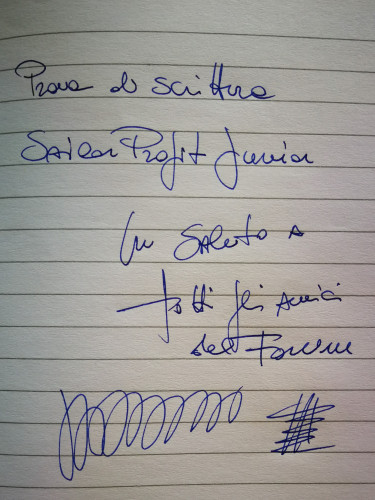 Prova di scrittura
Sailor Profit Junior
Un Saluto a
tutti gli Amici
del Forum